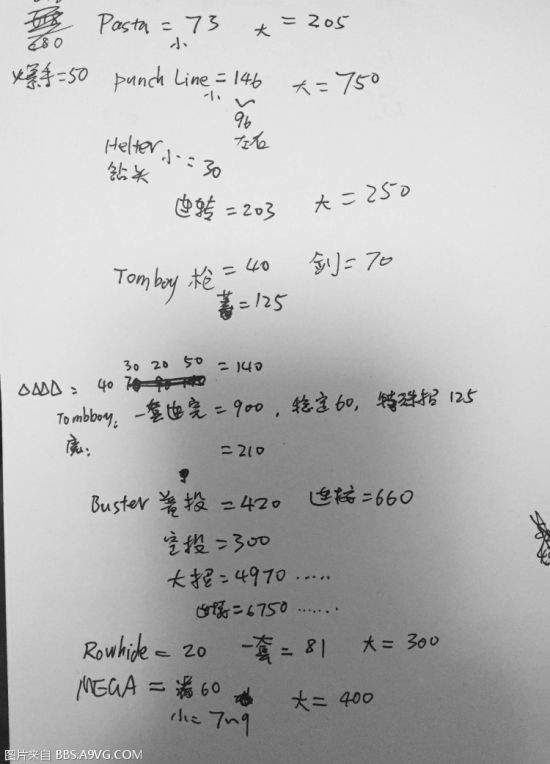 680 Pasta = 73 大 = 205
小
爆手=50 punch Line = 146 大 = 750
小
96
左右
Helter 小 = 30
钻头
连转 = 203 大 = 250
Tomboy 枪 = 40 剑 = 70
蓄 = 125
30 20 50 = 140
△△△△ = 40
Tombboy: 一套连完 = 900, 稳定60, 特殊招 125
= 210
Buster 普投 = 420 连接 = 660
空投 = 300
大招 = 4970 .....
= 6750 ......
Rowhide = 20 一套 = 81 大 = 300
MEGA = 满60 大 = 400
小 = 7~9
图片来自 BBS.A9VG.COM